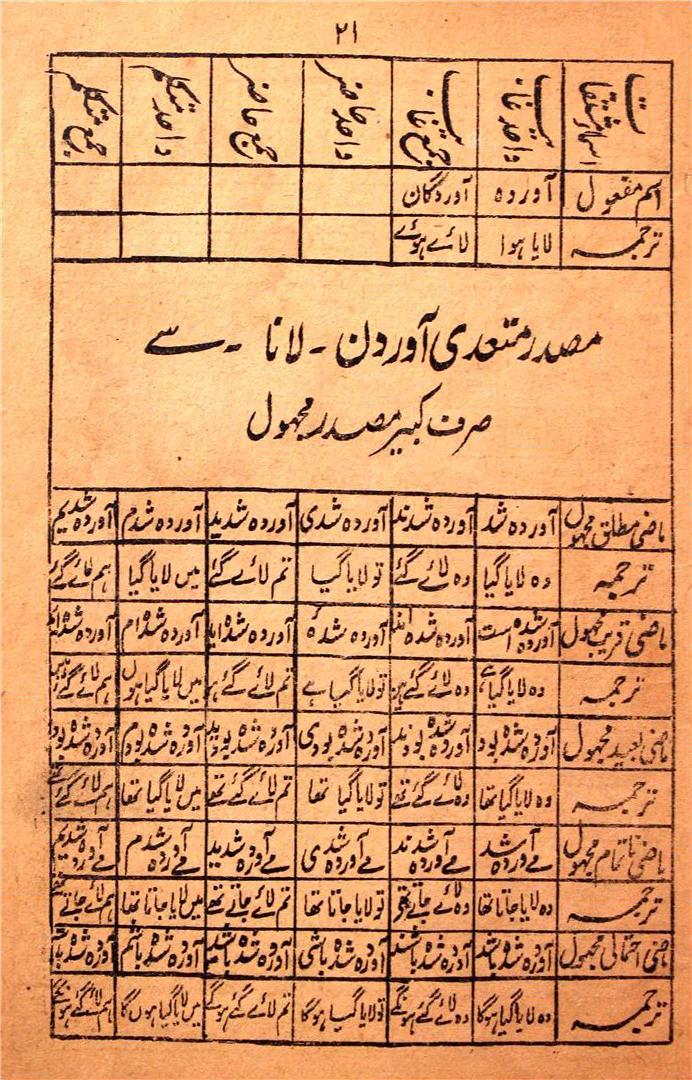 ۲۱
اسماء مشتقات واحد غائب جمع غائب واحد حاضر جمع حاضر واحد متکلم جمع متکلم
اسم مفعول آوردہ آوردگان
ترجمہ لایا ہوا لائے ہوئے
مصدر متعدی آوردن - لانا - سے
صرف کبیر مصدر مجہول
ماضی مطلق مجہول آوردہ شد آوردہ شدند آوردہ شدی آوردہ شدید آوردہ شدم آوردہ شدیم
ترجمہ وہ لایا گیا وہ لائے گئے تو لایا گیا تم لائے گئے میں لایا گیا ہم لائے گئے
ماضی قریب مجہول آوردہ شدہ است آوردہ شدہ اند آوردہ شدۂ آوردہ شدہ اید آوردہ شدہ ام آوردہ شدہ ایم
ترجمہ وہ لایا گیا ہے وہ لائے گئے ہیں تو لایا گیا ہے تم لائے گئے ہو میں لایا گیا ہوں ہم لائے گئے ہیں
ماضی بعید مجہول آوردہ شدہ بود آوردہ شدہ بودند آوردہ شدہ بودی آوردہ شدہ بودید آوردہ شدہ بودم آوردہ شدہ بودیم
ترجمہ وہ لایا گیا تھا وہ لائے گئے تھے تو لایا گیا تھا تم لائے گئے تھے میں لایا گیا تھا ہم لائے گئے تھے
ماضی ناتمام مجہول مے آوردہ شد مے آوردہ شدند مے آوردہ شدی مے آوردہ شدید مے آوردہ شدم مے آوردہ شدیم
ترجمہ وہ لایا جاتا تھا وہ لائے جاتے تھے تو لایا جاتا تھا تم لائے جاتے تھے میں لایا جاتا تھا ہم لائے جاتے تھے
ماضی احتمالی مجہول آوردہ شدہ باشد آوردہ شدہ باشند آوردہ شدہ باشی آوردہ شدہ باشید آوردہ شدہ باشم آوردہ شدہ باشیم
ترجمہ وہ لایا گیا ہوگا وہ لائے گئے ہونگے تو لایا گیا ہوگا تم لائے گئے ہوگے میں لایا گیا ہوں گا ہم لائے گئے ہونگے